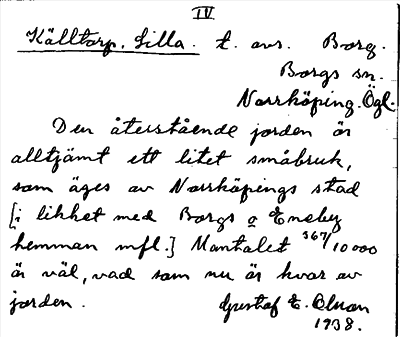 IV
Källtorp, Lilla. t. avs. Borg.
Borgs sn.
Norrköping. Ögl.
Den återstående jorden är
alltjämt ett litet småbruk,
som äges av Norrköpings stad
[i likhet med Borgs o Eneby
hemman mfl.] Mantalet 367/10000
är väl, vad som nu är kvar av
jorden. Gustaf E. Olson
1938.